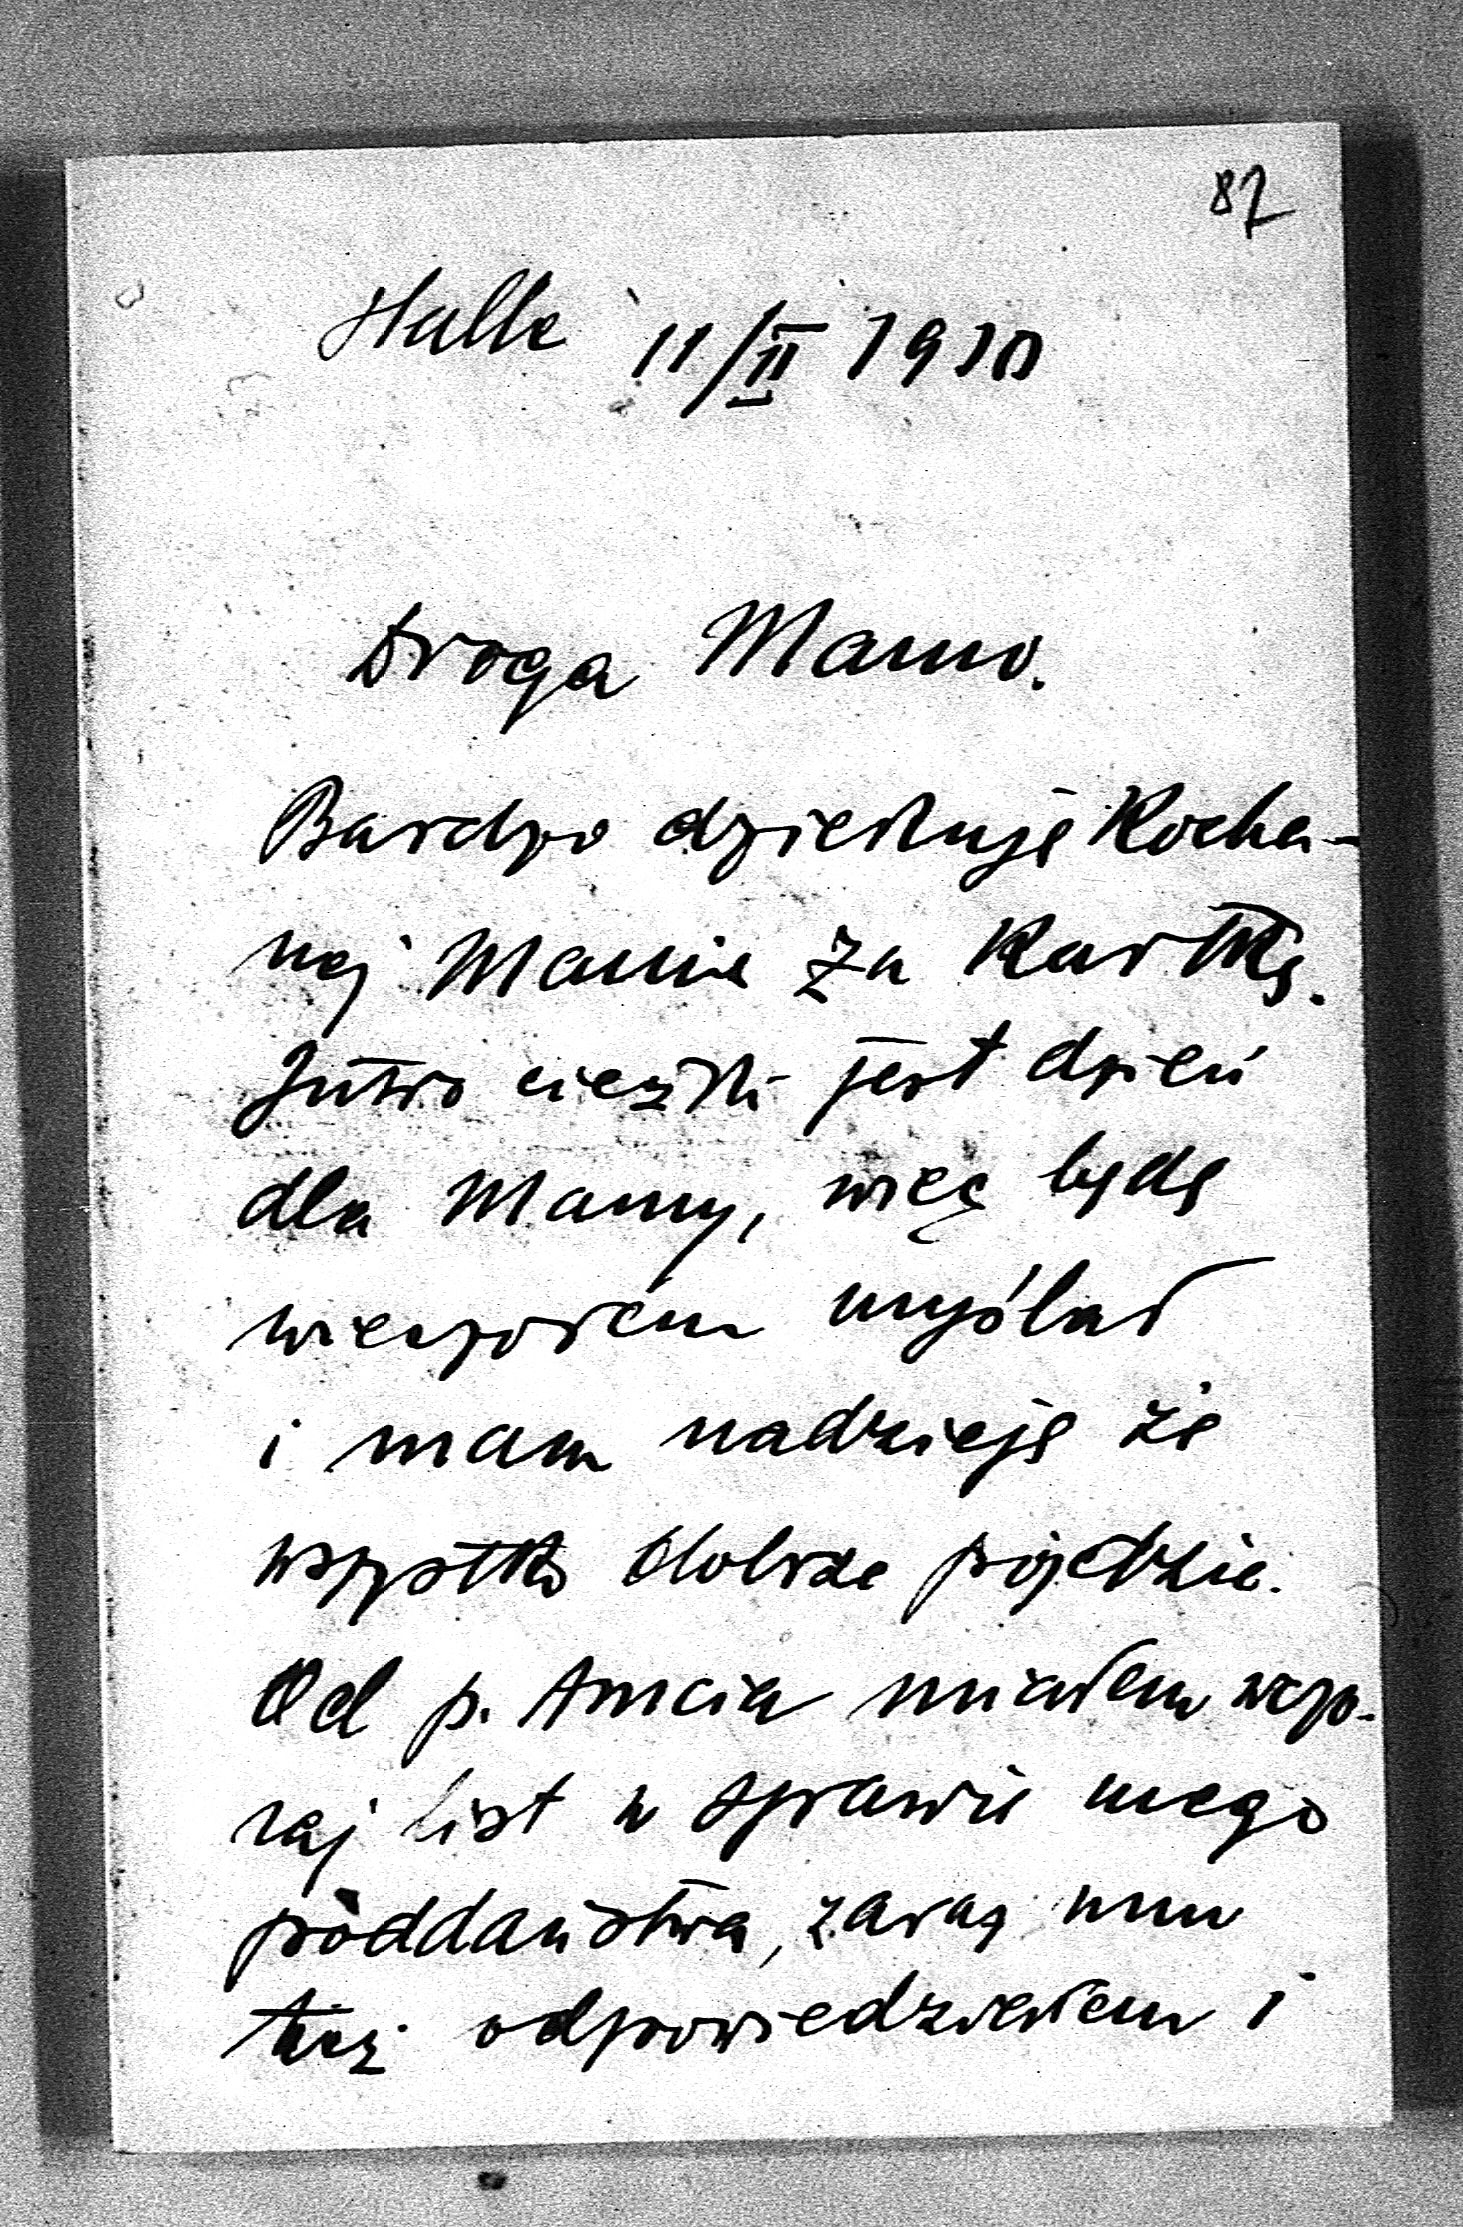 87
Halle 11/II 1910
Droga Mamo.
Bardzo dziękuję Kocha-
nej Mamie za kartkę.
Jutro ciężki jest dzień
dla Mamy, więc będę
wieczorem myślał
i mam nadzieję że
wszystko dobrze pójdzie.
Od p. miałem wczo-
raj list w sprawie mego
poddaństwa, zaraz mu
też odpowiedziałem i